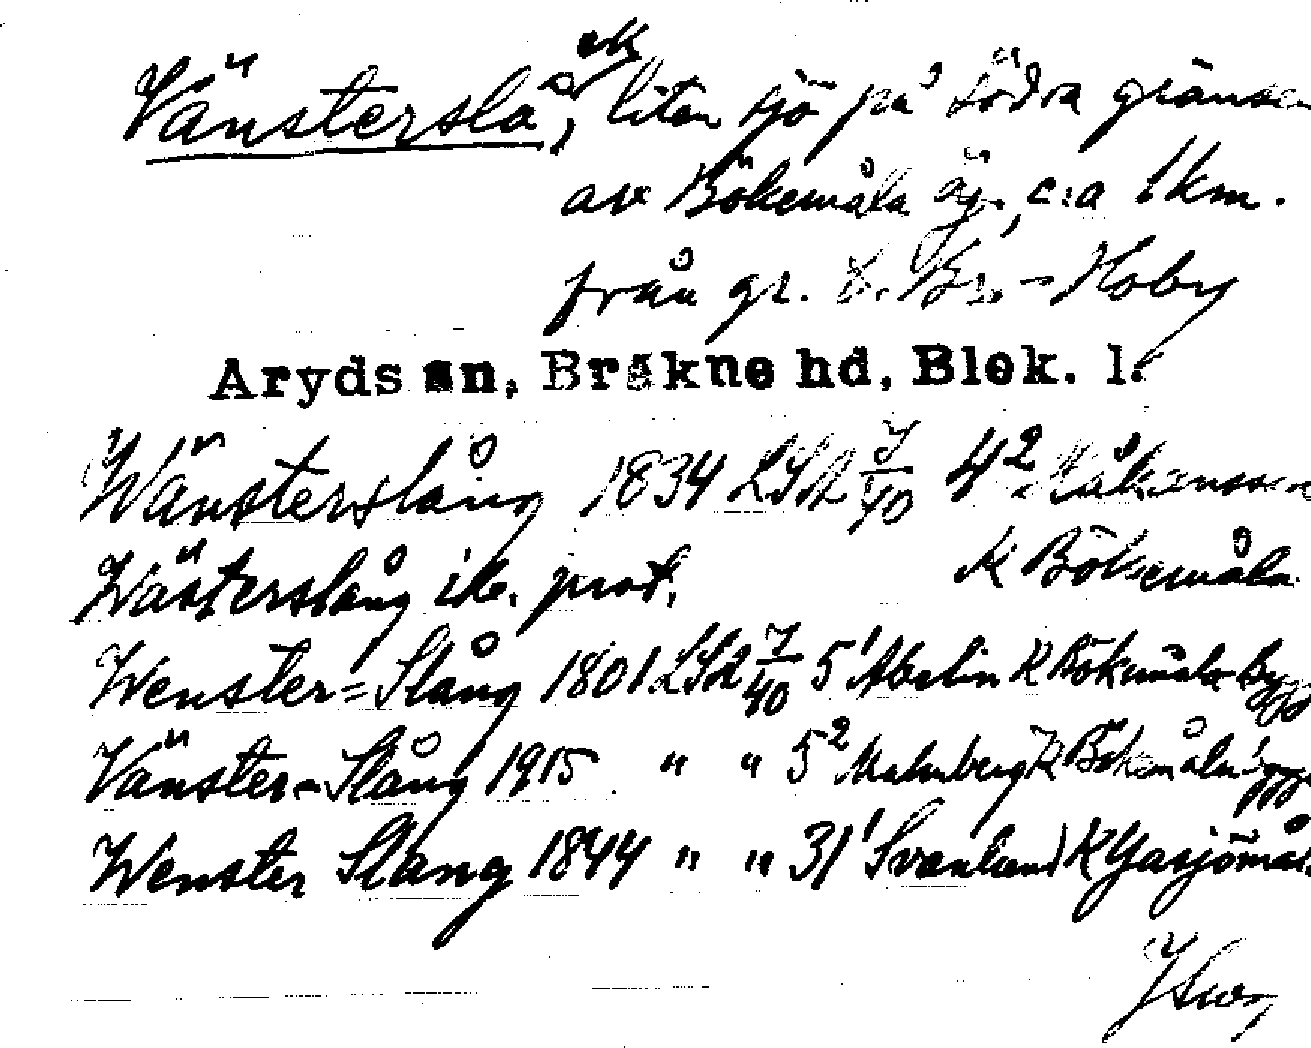 ek
Vänsterslå, liten sjö på södra gränsen
av Bökemåla äg., c:a 1 km.
från gr. t. Br.-Hoby
Aryds sn, Bräkne hd, Blek. l.
Wänsterslång 1834 LSA 7/40 4² Håkansson
Wästerslång i be. prot. K Bökemåla
Wenster=Slång 1801 LSA 7/40 5¹ Abelin K Bökemåla
Vänster-Slång 1915 " " 5² Malmberg K Bökemåla
Wenster Slång 1844 " " 31¹ Svanlund K